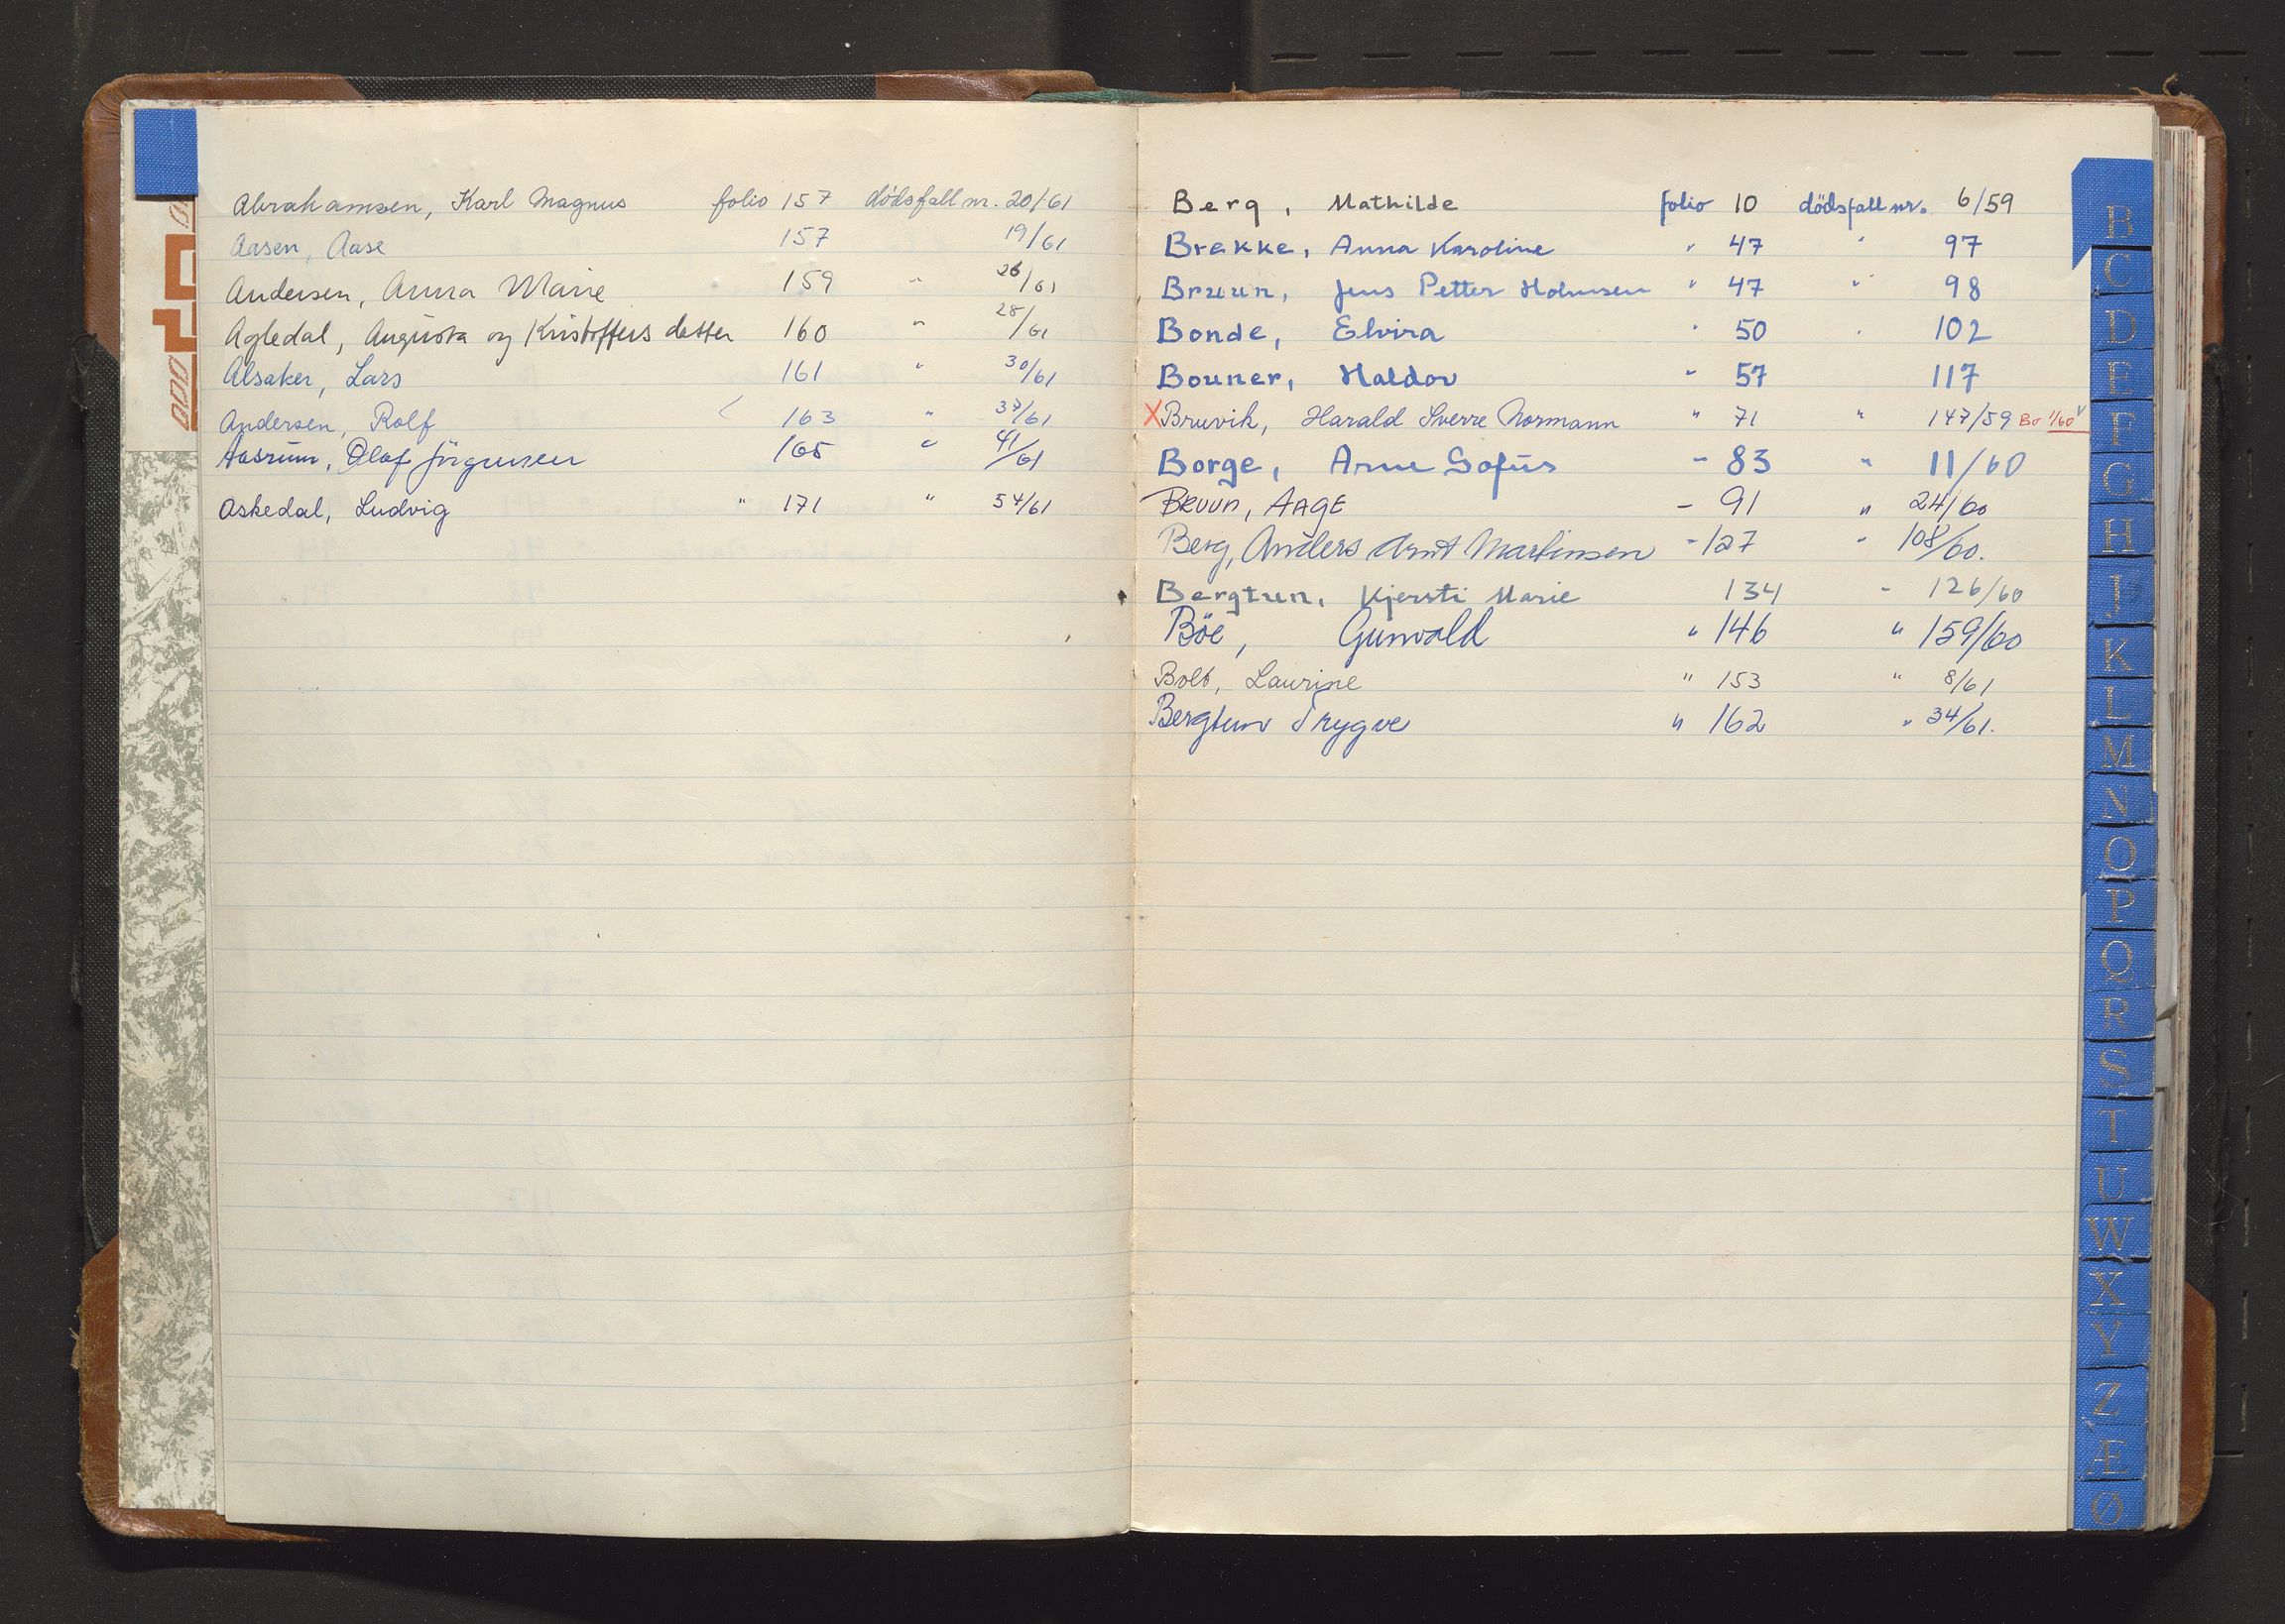 Abrahamsen, Karl Magnus folio 157 dödsfall nr. 20/61
Aasen, Aase 157 19/61
Andersen, Anna Marie 159 " 26/61
Agledal, Augusta og Kristoffers datter 160 " 28/61
Alsaker, Lars 161 " 30/61
Andersen, Rolf 163 " 37/61
Aasrum, Olaf Jörgensen 165 " 41/61
Askedal, Ludvig " 171 " 54/61
Berg, Mathilde folio 10 dödsfall nr. 6/59
Brekke, Anna Karoline " 47 " 97
Bruun, Jens Petter Holmsen " 47 " 98
Bonde, Elvira " 50 " 102
Bouner, Haldor " 57 117
X Bruvik, Harald Sverre Normann " 71 " 147/59 Bo 1/60 V
Borge, Arne Sofus " 83 " 11/60
Bruun, Aage - 91 " 24/60
Berg, Anders Arnt Martinsen - 127 " 108/60.
Bergtun, Kjersti Marie 134 - 126/60
Böe, Gunvald " 146 " 159/60
Bolb, Laurine " 153 " 8/61
Bergtun Trygve " 162 " 34/61.
B
C
D
E
F
G
H
I
K
L
M
N
O
P
Q
R
S
T
U
W
X
Y
Z
Æ
Ø